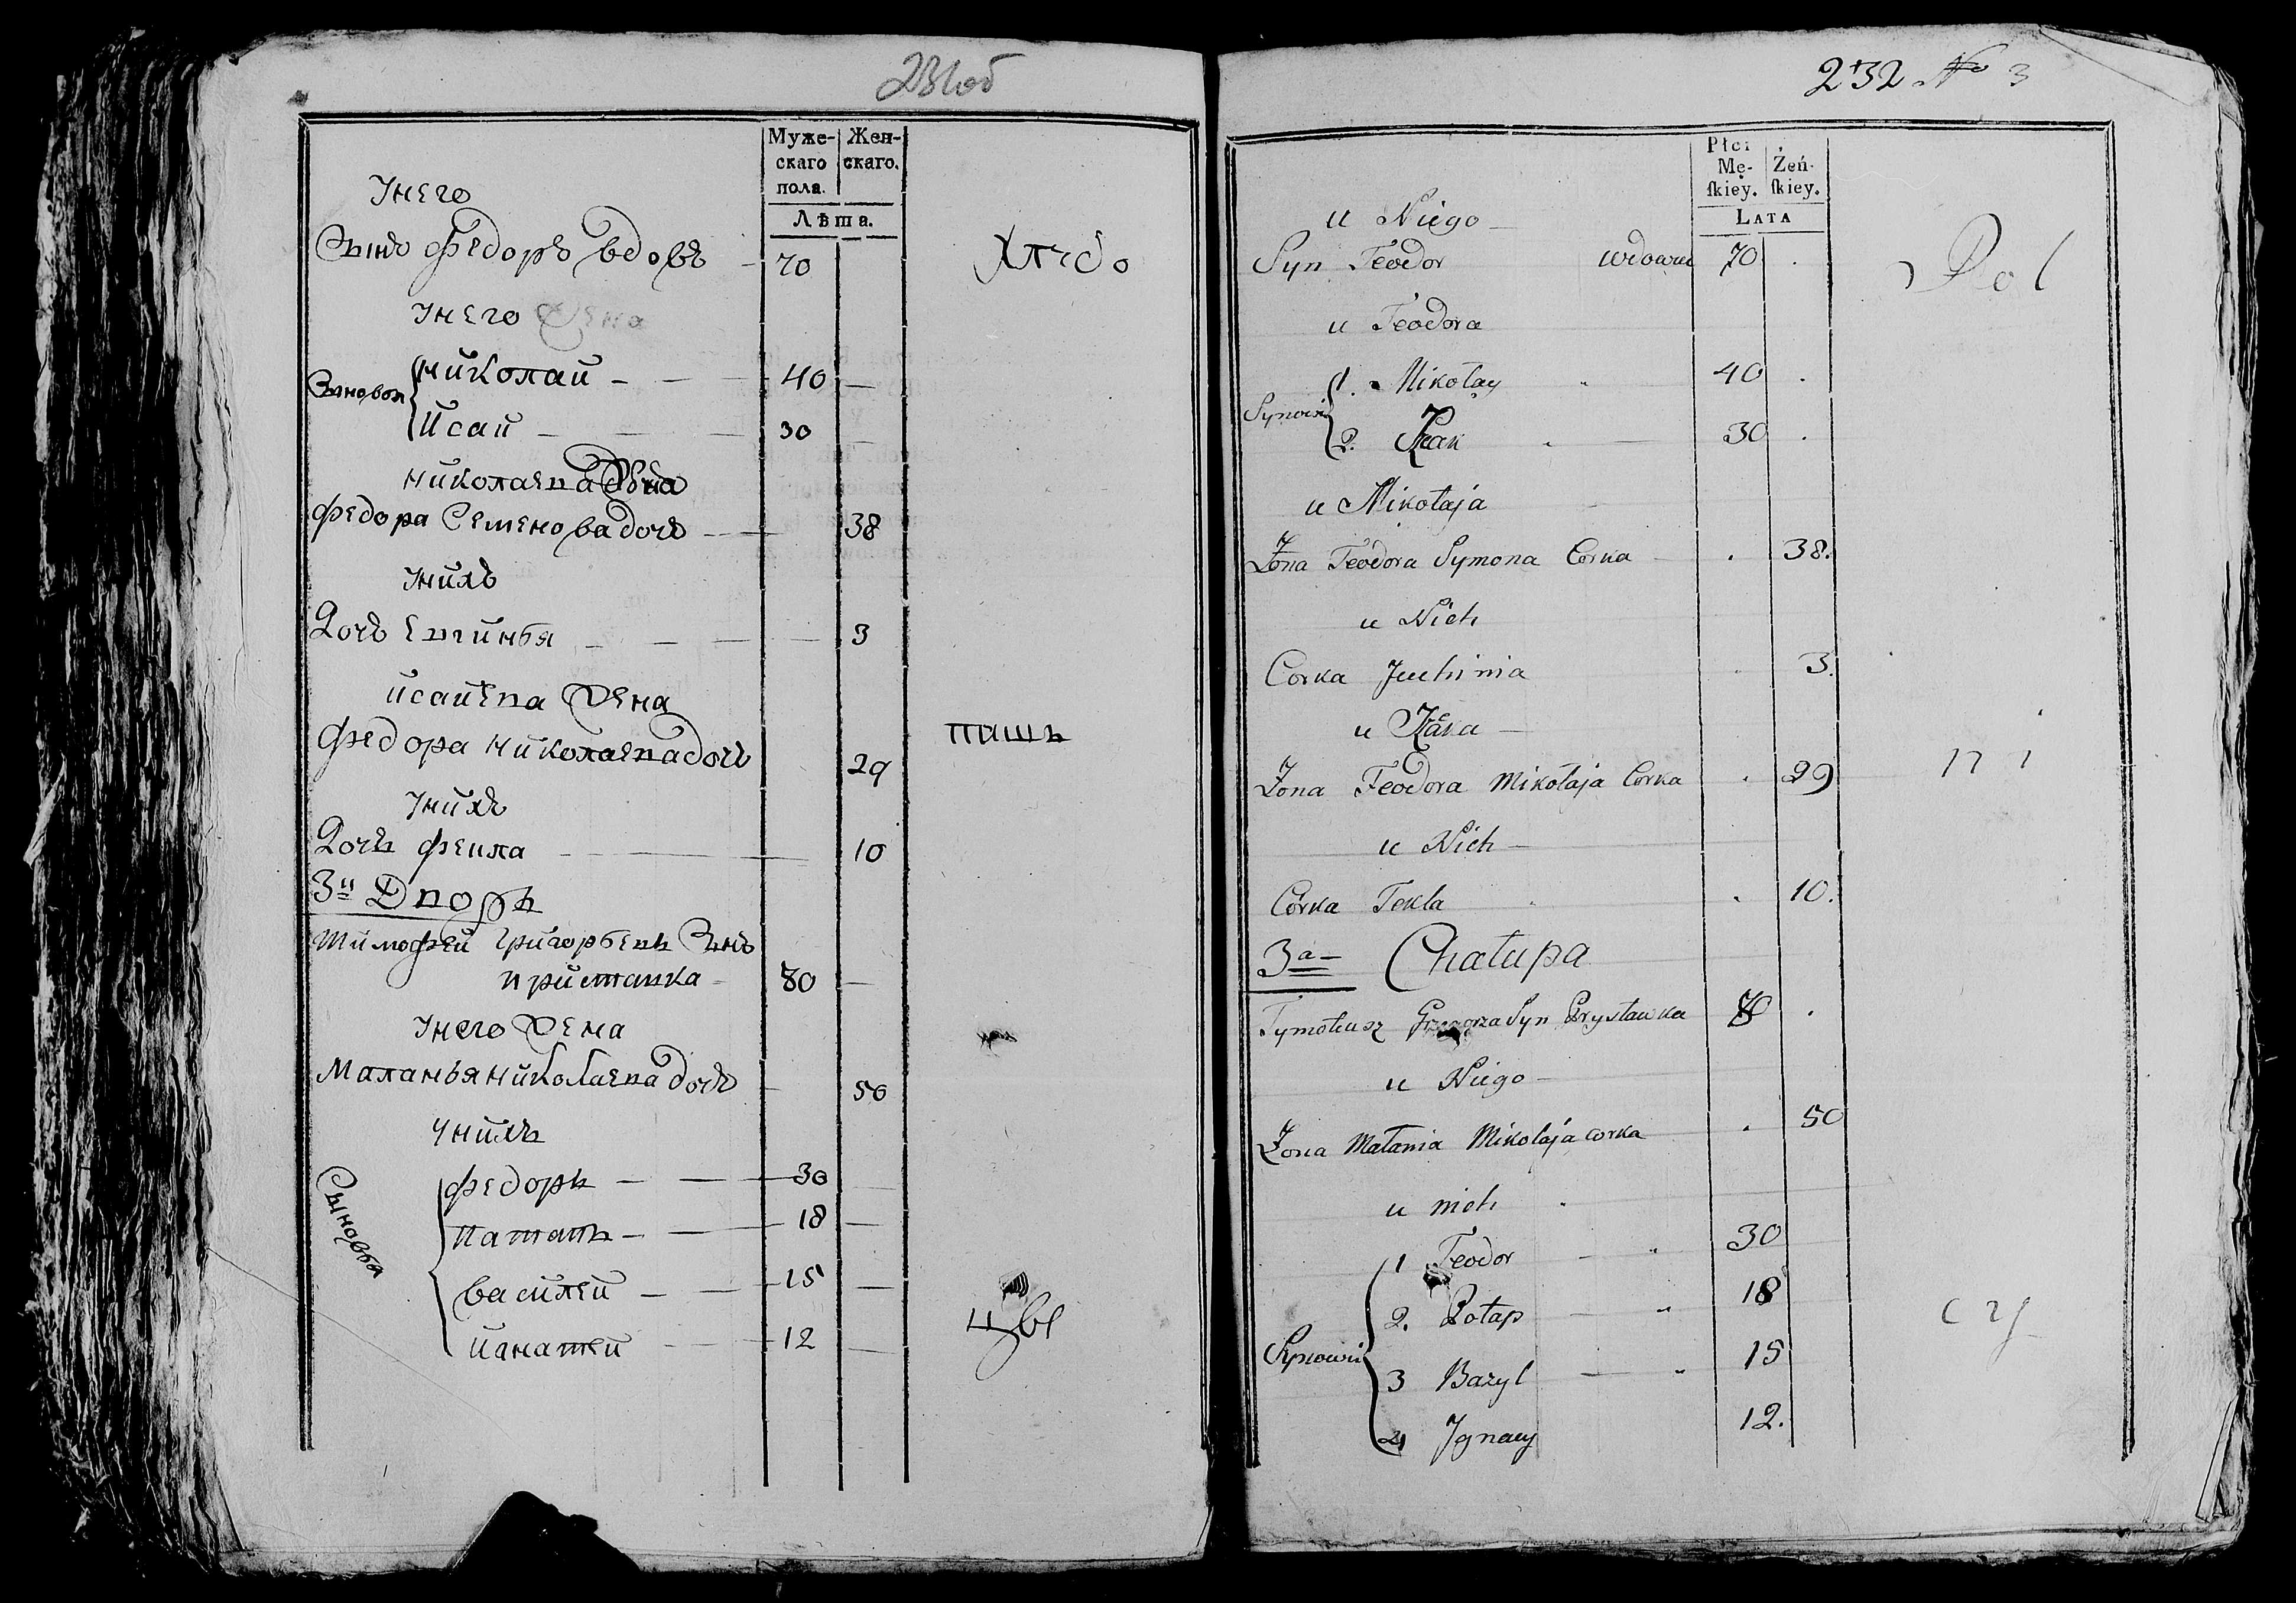 231об
Муже-
скаго
пола.
Жен-
скаго.
Лѣта.
Унего
Сынъ Федоръ вдовъ - 70
Унего жена
Сыновья
Николай - 40 -
Исай - 30 -
Николаева жена
Федора Семенова дочь - 38
Унихъ
Дочь Евгинья - 3
Исаиева жена
Федора Николаева дочь 29
Унихъ
Дочь Фекла - 10
3й Дворъ
Тимофей Григорьевъ Сынъ
Приставка - 80 -
Унего жена
Маланья Николаева дочь - 50
Унихъ
Сыновья
Федоръ - 30 -
Патапъ - 18 -
Василей - 15 -
Игнатей - 12 -
232 No 3
Płci
Mę-
ſkiey.
Żeń-
ſkiey.
LATA
u Niego
Syn Teodor wdowiec 70 .
u Teodora
Synowie
1. Mikołay 40 .
2. 30 .
u Mikołaja
Żona Teodora Symona Corka . 38.
u Nich
Corka Juchinia 3.
u
Żona Teodora Mikołaja Corka . 29
u Nich
Córka Tekla . 10.
3a Chałupa
Tymoteusz Grzegorza Syn Prystawka .
u Niego
Żona Małania Mikołaja corka . 50
u nich
Synowie
1 Teodor 30
2. Potap 18
3 Bazyl 15
4 Ignacy 12.